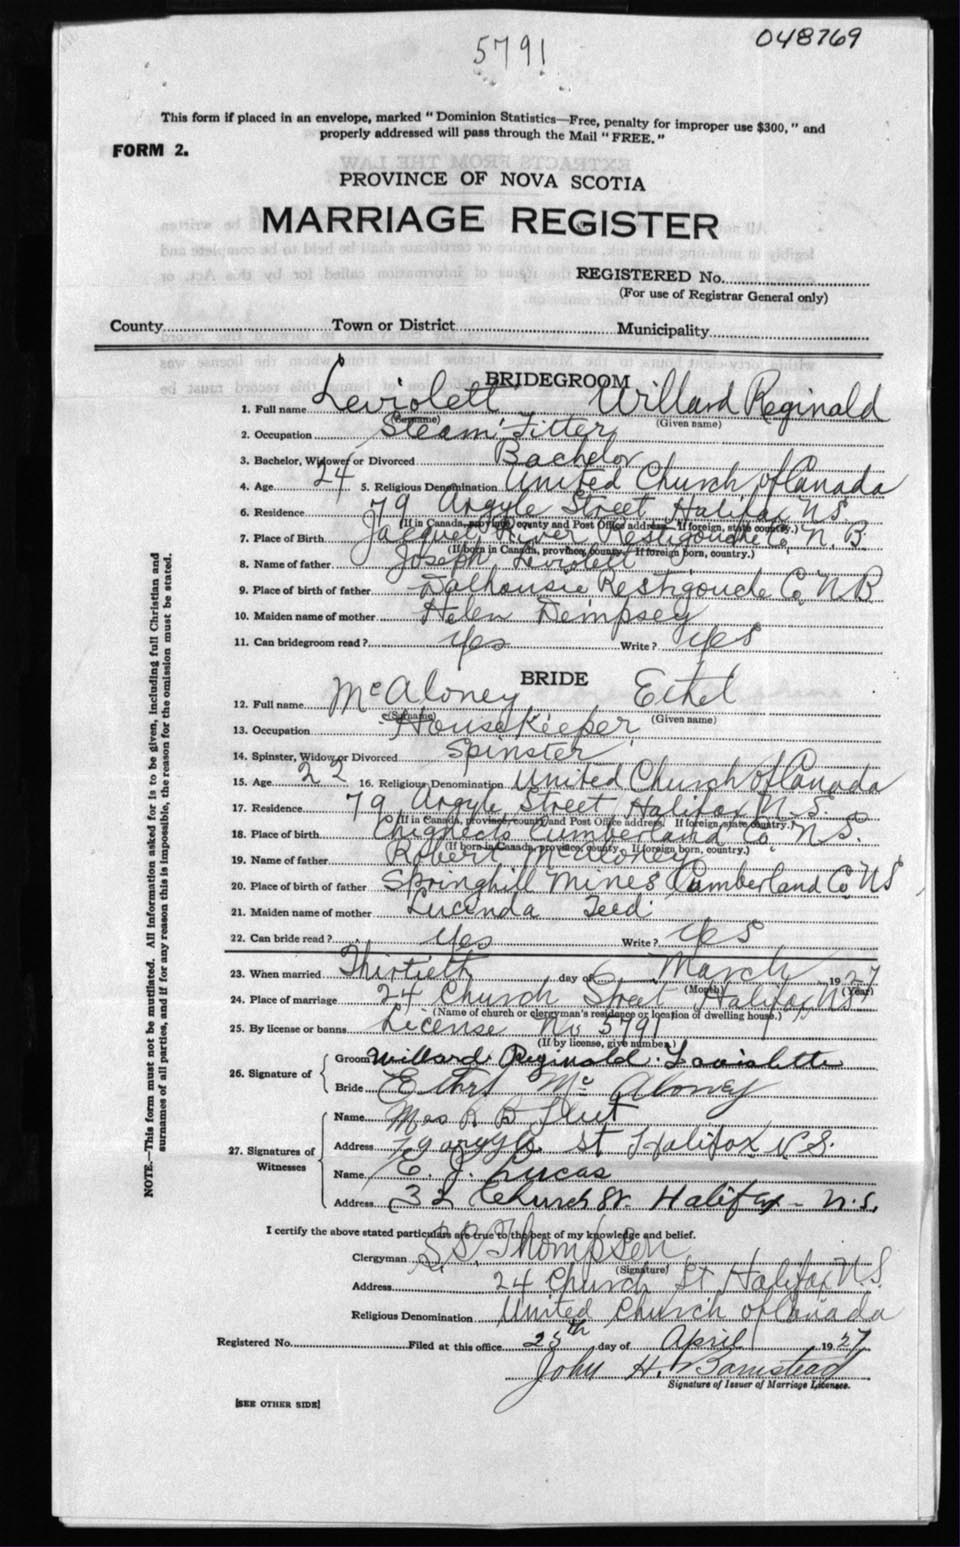 5791
048769
This form if placed in an envelope, marked "Dominion Statistics—Free, penalty for improper use $300," and
properly addressed will pass through the Mail "FREE."
FORM 2.
PROVINCE OF NOVA SCOTIA
MARRIAGE REGISTER
REGISTERED No.
(For use of Registrar General only)
County Town or District Municipality
BRIDEGROOM
1. Full name Leviolett Willard Reginald
(Surname) (Given name)
2. Occupation Steam Fitter
3. Bachelor, Widower or Divorced Bachelor
4. Age 24 5. Religious Denomination United Church of Canada
6. Residence 79 Argyle Street Halifax NS
(If in Canada, province, county and Post Office address. If foreign, state country.)
7. Place of Birth Jacquet River Restigouche Co, N. B.
(If born in Canada, province, county. If foreign born, country.)
8. Name of father Joseph Leviolett
9. Place of birth of father Dalhousie Restigouche Co. N B
10. Maiden name of mother Helen Dempsey
11. Can bridegroom read? Yes Write? Yes
BRIDE
12. Full name McAloney Ethel
(Surname) (Given name)
13. Occupation Housekeeper
14. Spinster, Widow or Divorced Spinster
15. Age 22 16. Religious Denomination United Church of Canada
17. Residence 79 Argyle Street Halifax N S
(If in Canada, province, county and Post Office address. If foreign, state country.)
18. Place of birth Chignecto Cumberland Co. N S.
(If born in Canada, province, county. If foreign born, country.)
19. Name of father Robert McAloney
20. Place of birth of father Springhill Mines Cumberland Co NS
21. Maiden name of mother Lucinda Teed
22. Can bride read? Yes Write? Yes
23. When married Thirtieth day of March 1927
(Month) (Year)
24. Place of marriage 24 Church Street Halifax NS
(Name of church or clergyman's residence or location of dwelling house.)
25. By license or banns License No 5791
(If by license, give number)
26. Signature of
Groom Willard Reginald Lavielette
Bride Ethel Mc Aloney
27. Signatures of Witnesses
Name Mrs R B
Address 79 argyle st Halifax N S.
Name E. J. Lucas
Address 32 Church St. Halifax - N.S.
I certify the above stated particulars are true to the best of my knowledge and belief.
Clergyman Thompson
(Signature)
Address 24 Church St Halifax N.S.
Religious Denomination United Church of Canada
Registered No. Filed at this office 25th day of April 1927
John H. Barnstead
Signature of Issuer of Marriage Licenses.
[SEE OTHER SIDE]
NOTE.—This form must not be mutilated. All information asked for is to be given, including full Christian and
surnames of all parties, and if for any reason this is impossible, the reason for the omission must be stated.